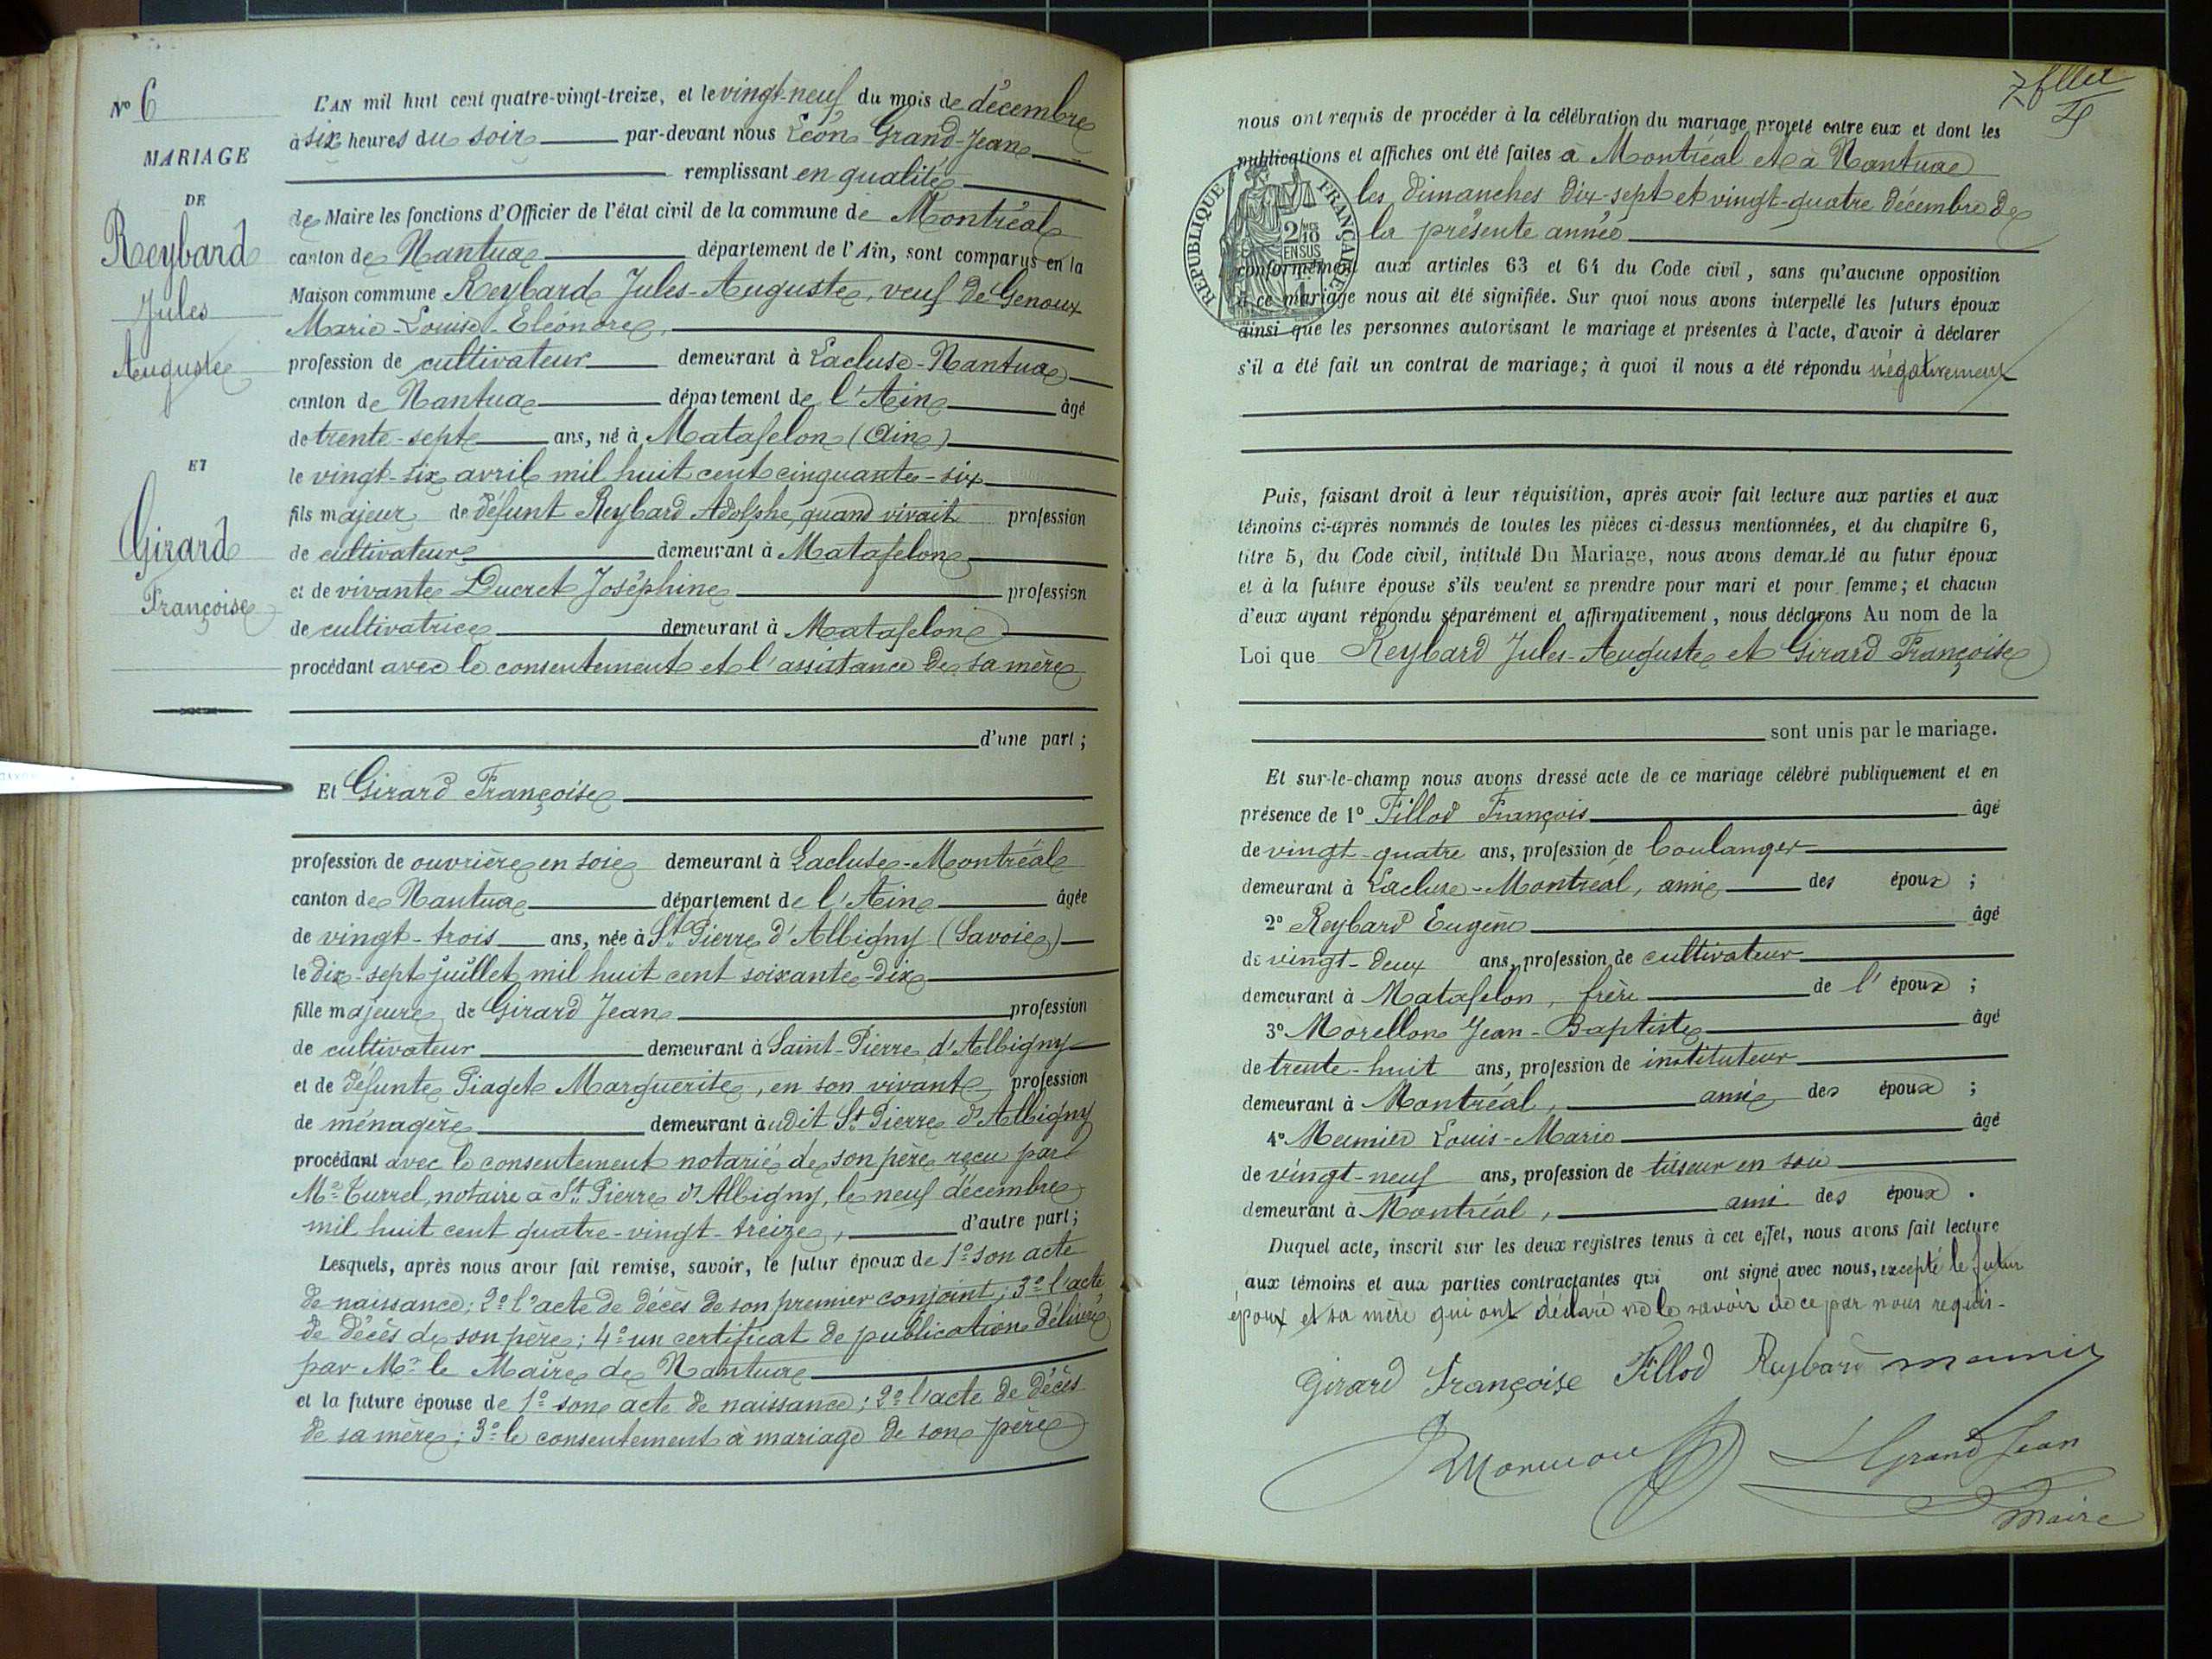 N° 6
MARIAGE
DE
Reybard
Jules
Auguste
ET
Girard
Françoise
L'AN mil huit cent quatre-vingt-treize, et le vingt-neuf du mois de décembre
à six heures du soir par-devant nous Léon Grand-Jean
remplissant en qualité
de Maire les fonctions d'Officier de l'état civil de la commune de Montréal
canton de Nantua département de l'Ain, sont comparus en la
Maison commune Reybard Jules-Auguste, veuf de Genoux
Marie-Louise-Eléonore,
profession de cultivateur demeurant à Lacluse-Nantua
canton de Nantua département de l'Ain âgé
de trente-sept ans, né à Matafelon (Ain)
le vingt-six avril mil huit cent cinquante-six
fils majeur de défunt Reybard Adolphe, quand vivait profession
de cultivateur demeurant à Matafelon
et de vivante Ducret Joséphine profession
de cultivatrice demeurant à Matafelon
procédant avec le consentement et l'assistance de sa mère
d'une part ;
Et Girard Françoise
profession de ouvrière en soie demeurant à Lacluse-Montréal
canton de Nantua département de l'Ain âgée
de vingt-trois ans, née à St Pierre d'Albigny (Savoie)
le dix-sept juillet mil huit cent soixante-dix
fille majeure de Girard Jean profession
de cultivateur demeurant à Saint-Pierre d'Albigny
et de défunte Piaget Marguerite, en son vivant profession
de ménagère demeurant audit St Pierre d'Albigny
procédant avec le consentement notarié de son père reçu par
Me Turrel, notaire à St Pierre d'Albigny, le neuf décembre
mil huit cent quatre-vingt-treize, d'autre part ;
Lesquels, après nous avoir fait remise, savoir, le futur époux de 1° son acte
de naissance ; 2° l'acte de décès de son premier conjoint ; 3° l'acte
de décès de son père ; 4° un certificat de publication délivré
par Mr le Maire de Nantua
et la future épouse de 1° son acte de naissance ; 2° l'acte de décès
de sa mère ; 3° le consentement à mariage de son père
nous ont requis de procéder à la célébration du mariage projeté entre eux et dont les
publications et affiches ont été faites à Montréal et à Nantua
les dimanches dix-sept et vingt-quatre décembre de
la présente année
RÉPUBLIQUE FRANÇAISE
2/10 EN SUS
conformément aux articles 63 et 64 du Code civil, sans qu'aucune opposition
à ce mariage nous ait été signifiée. Sur quoi nous avons interpellé les futurs époux
ainsi que les personnes autorisant le mariage et présentes à l'acte, d'avoir à déclarer
s'il a été fait un contrat de mariage ; à quoi il nous a été répondu négativement
Puis, faisant droit à leur réquisition, après avoir fait lecture aux parties et aux
témoins ci-après nommés de toutes les pièces ci-dessus mentionnées, et du chapitre 6,
titre 5, du Code civil, intitulé Du Mariage, nous avons demandé au futur époux
et à la future épouse s'ils veulent se prendre pour mari et pour femme ; et chacun
d'eux ayant répondu séparément et affirmativement, nous déclarons Au nom de la
Loi que Reybard Jules-Auguste et Girard Françoise
sont unis par le mariage.
Et sur-le-champ nous avons dressé acte de ce mariage célébré publiquement et en
présence de 1° Fillod François âgé
de vingt-quatre ans, profession de boulanger
demeurant à Lacluse-Montréal, ami des époux ;
2° Reybard Eugène âgé
de vingt-deux ans, profession de cultivateur
demeurant à Matafelon, frère de l'époux ;
3° Morellon Jean-Baptiste âgé
de trente-huit ans, profession de instituteur
demeurant à Montréal, ami des époux ;
4° Meunier Louis-Marie âgé
de vingt-neuf ans, profession de tisseur en soie
demeurant à Montréal, ami des époux.
Duquel acte, inscrit sur les deux registres tenus à cet effet, nous avons fait lecture
aux témoins et aux parties contractantes qui ont signé avec nous, excepté le futur
époux et sa mère qui ont déclaré ne le savoir de ce par nous requis.
Girard Françoise Fillod Reybard meunier
L Grand Jean
Maire